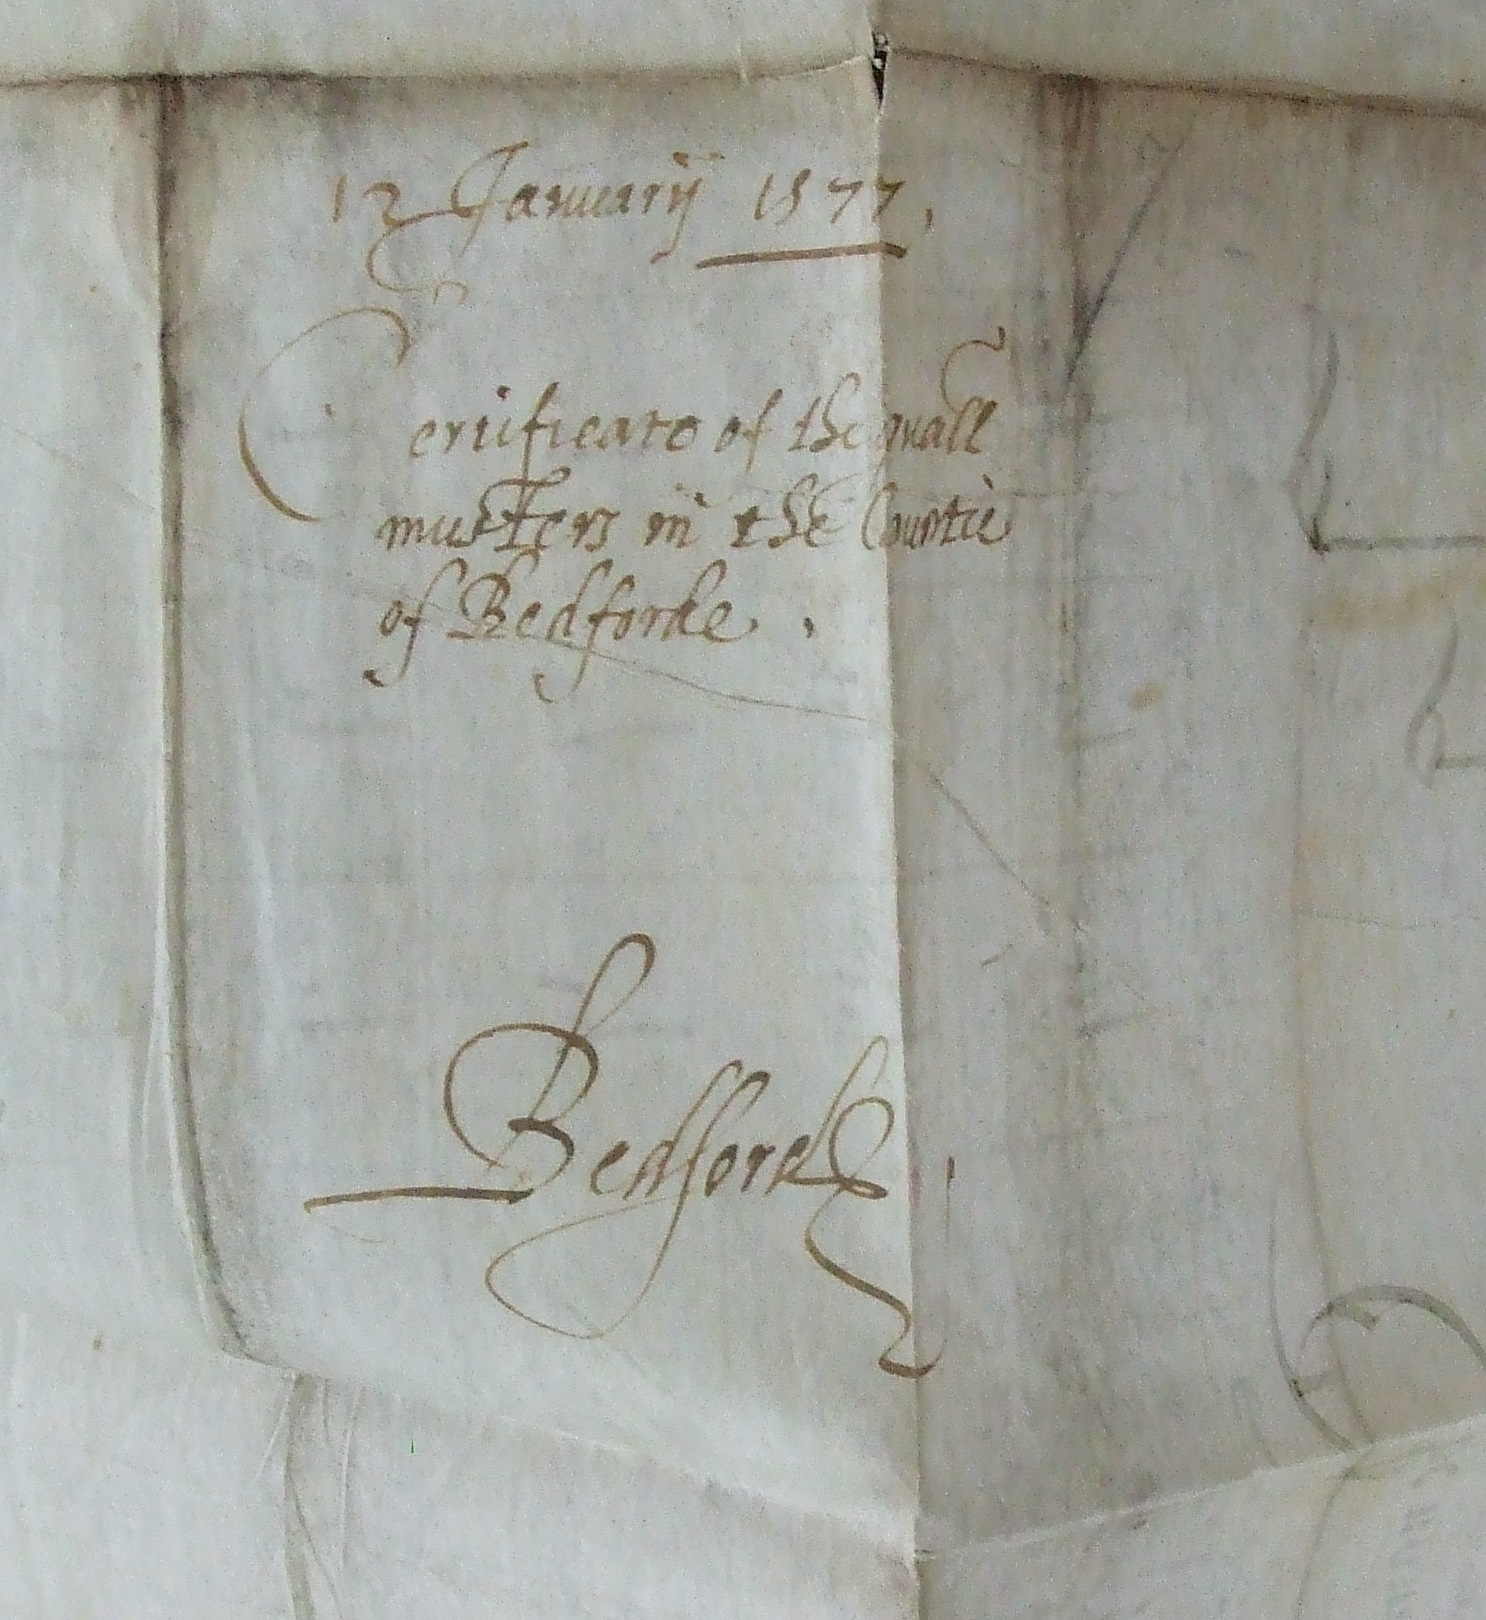 12 Januarij 1577.
Certificate of the gnall
musters in the Countie
of Bedforde.
Bedford